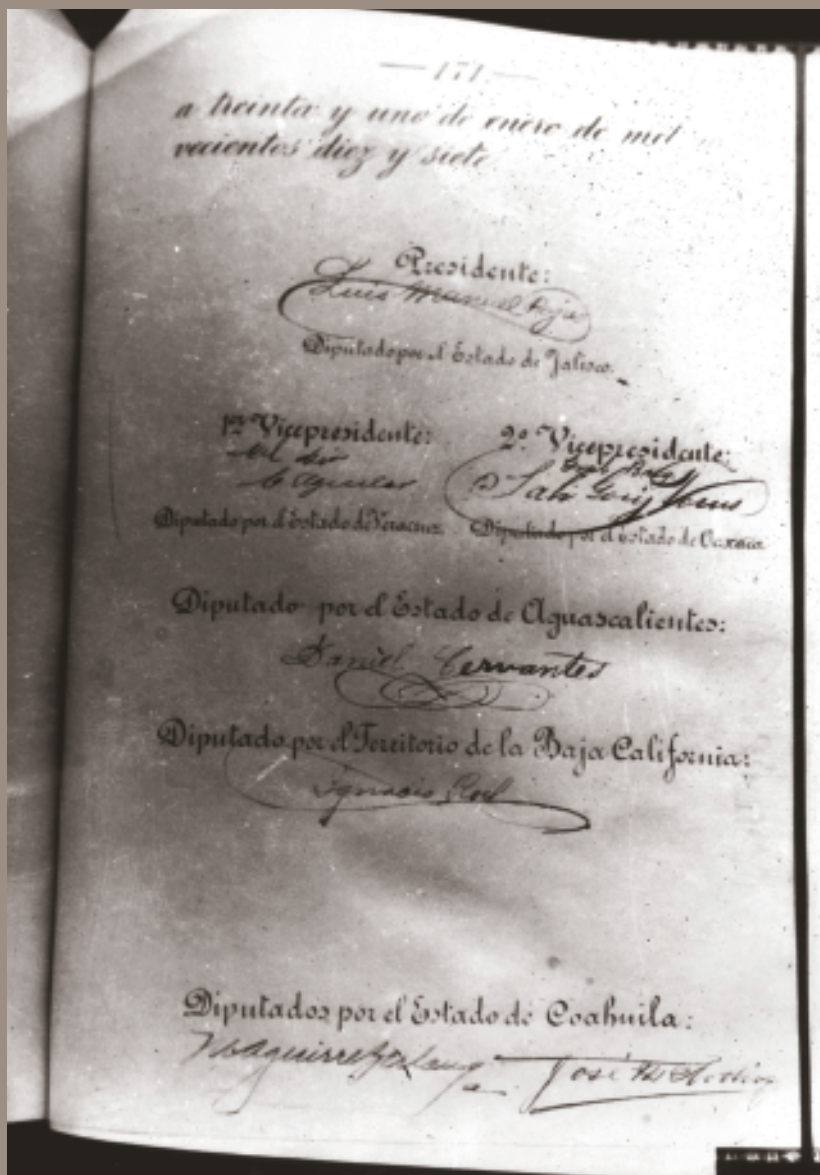 — 171 —
a treinta y uno de enero de mil
vecientos diez y siete
Presidente:
Luis Manuel Rojas
Diputado por el Estado de Jalisco.
1er Vicepresidente: 2º Vicepresidente:
C Aguilar
Diputado por el Estado de Veracruz. Diputado por el Estado de Oaxaca.
Diputado por el Estado de Aguascalientes:
Daniel Cervantes
Diputado por el Territorio de la Baja California:
Ignacio Roel
Diputados por el Estado de Coahuila:
M Aguirre Berlanga José